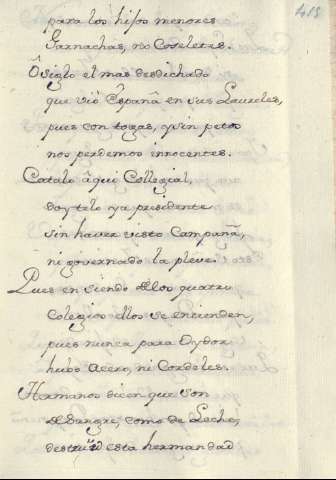 415
para los hijos menores
Garnachas, no Coseletes.
O siglo el mas desdichado
que vió España en sus Laureles,
pues con togas, y sin petos
nos perdemos innocentes.
Catalo âqui Collegial,
doytelo ya presidente
sin haver visto Campaña,
ni governado la pleve.
Pues en siendo de los quatro
Colegios ellos se entienden,
pues nunca para Oydor
hubo Acero, ni Cordeles.
Hermanos dicen que son
de Sangre, como de Leche,
esta hermandad